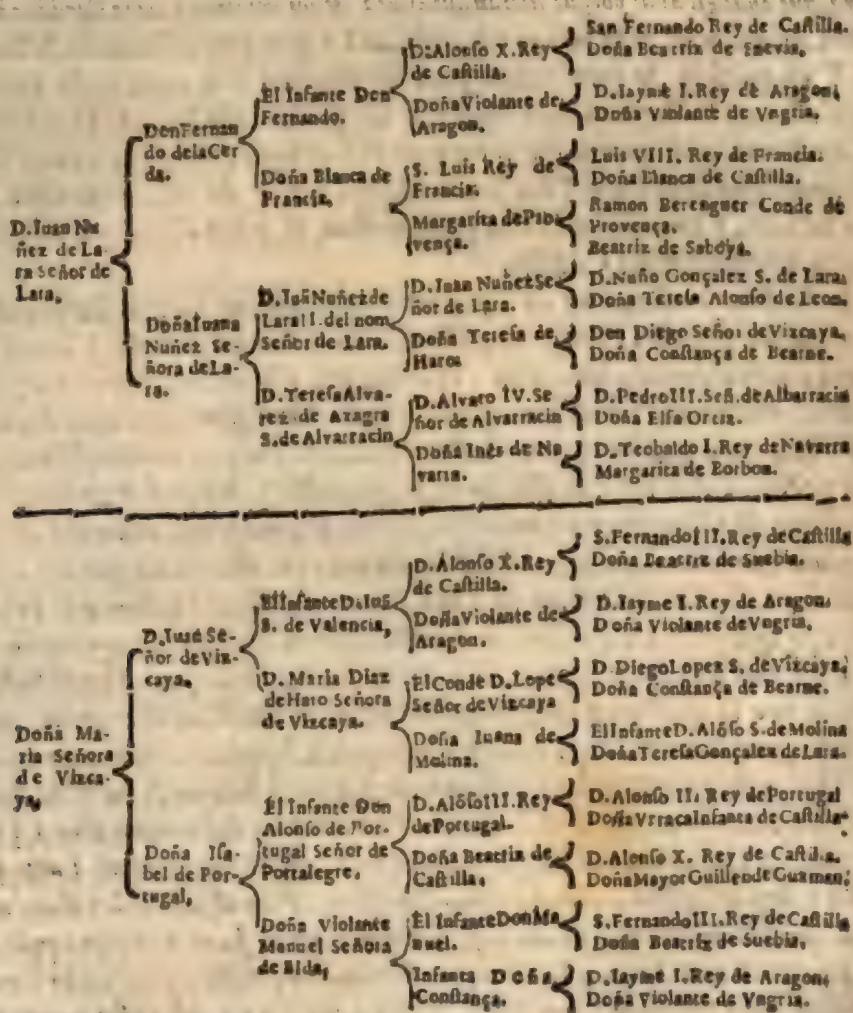 D. Iuan Nu
ñez de La-
ra Señor de
Lara,
Don Fernan
do de la Cer
da.
Doña Iuana
Nuñez Se-
ñora de La-
ra.
El Infante Don
Fernando.
Doña Blanca de
Francia,
D. Iuã Nuñez de
Lara II. del nom
Señor de Lara.
D. Tereſa Alva-
rez de Azagra
S. de Alvarracin
D. Alonſo X. Rey
de Caſtilla.
Doña Violante de
Aragon.
S. Luis Rey de
Francia.
Margarita de Pro
vença.
D. Iuan Nuñez Se
ñor de Lara.
Doña Tereſa de
Haro.
D. Alvaro IV. Se
ñor de Alvarracin
Doña Inés de Na
varra.
San Fernando Rey de Caſtilla.
Doña Beatriz de Suevia,
D. Iayme I. Rey de Aragon,
Doña Violante de Vngria,
Luis VIII. Rey de Francia.
Doña Blanca de Caſtilla.
Ramon Berenguer Conde de
Provença.
Beatriz de Saboya.
D. Nuño Gonçalez S. de Lara.
Doña Tereſa Alonſo de Leon.
Don Diego Señor de Vizcaya,
Doña Conſtança de Bearne.
D. Pedro III. Señ. de Albarracin
Doña Elfa Ortiz.
D. Teobaldo I. Rey de Navarra
Margarita de Borbon.
Doña Ma-
ria Señora
de Vizca-
ya,
D. Iuã Se-
ñor de Viz-
caya,
Doña Iſa-
bel de Por-
tugal,
El Infante D. Iuã
S. de Valencia,
D. Maria Diaz
de Haro Señora
de Vizcaya.
El Infante Don
Alonſo de Por-
tugal Señor de
Portalegre,
Doña Violante
Manuel Señora
de Elda,
D. Alonſo X. Rey
de Caſtilla.
Doña Violante de
Aragon.
El Conde D. Lope
Señor de Vizcaya
Doña Iuana de
Molina.
D. Alõſo III. Rey
de Portugal.
Doña Beatriz de
Caſtilla,
El Infante Don Ma
nuel.
Infanta Doña
Conſtança.
S. Fernando III. Rey de Caſtilla
Doña Beatriz de Suebia.
D. Iayme I. Rey de Aragon,
Doña Violante de Vngria,
D. Diego Lopez S. de Vizcaya,
Doña Conſtança de Bearne.
El Infante D. Alõſo S. de Molina
Doña Tereſa Gonçalez de Lara.
D. Alonſo II. Rey de Portugal
Doña Vrraca Infanta de Caſtilla
D. Alonſo X. Rey de Caſtilla.
Doña Mayor Guillen de Guzman.
S. Fernando III. Rey de Caſtilla
Doña Beatriz de Suebia,
D. Iayme I. Rey de Aragon,
Doña Violante de Vngria.